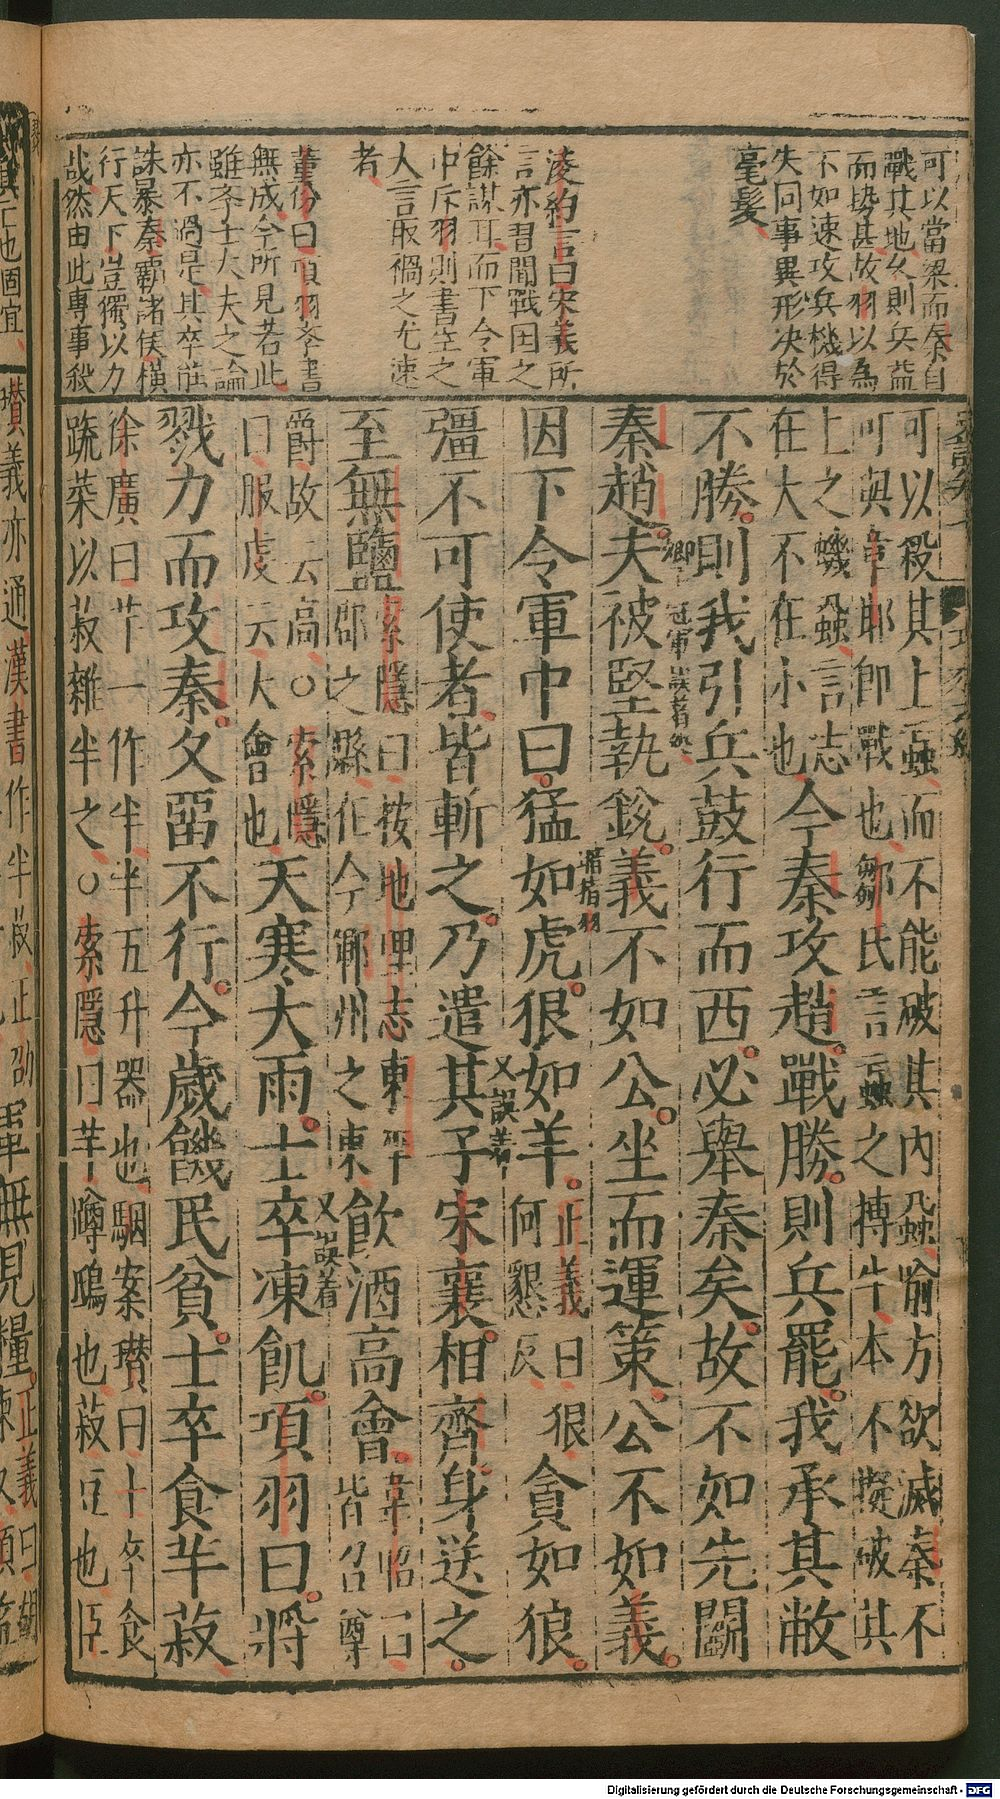 可以當梁而秦自
戰其地久則兵益
而勢甚故羽以為
不如速攻兵機得
失同事異形决於
毫髮
凌約言曰宋義所
言亦習聞戰國之
餘謀耳而下令軍
中斥羽則書生之
大言取禍之尤速
者
董份曰項羽季書
無成今所見若此
雖季士大夫之論
亦不過是其卒能
誅暴秦霸諸侯橫
行天下豈獨以力
哉然由此專事殺
可以殺其上蝱而不能破其內蟣蝨喻方欲滅秦不
可與章邯即戰也鄒氏言蝱之搏牛本不擬破其
上之蟣蝨言志
在大不在小也今秦攻趙戰勝則兵罷我承其敝
不勝則我引兵鼓行而西必舉秦矣故不如先鬬
秦趙夫被堅執銳義不如公坐而運策公不如義
因下令軍中曰猛如虎狠如羊
正義曰狠
何懇反
貪如狼
彊不可使者皆斬之乃遣其子宋襄相齊身送之
至無鹽
索隱曰按地理志東平
郡之縣在今鄆州之東
飲酒高會
韋昭曰
皆召尊
爵故云高○索隱
曰服虔云大會也
天寒大雨士卒凍飢項羽曰將
戮力而攻秦久畱不行今歲饑民貧士卒食芋菽
徐廣曰芋一作半半五升器也駰案瓚曰士卒食
蔬菜以菽雜半之○索隱曰芋蹲鴟也菽豆也臣
瓚義亦通漢書作半菽
軍無見糧
正義曰胡
Digitalisierung gefördert durch die Deutsche Forschungsgemeinschaft - DFG